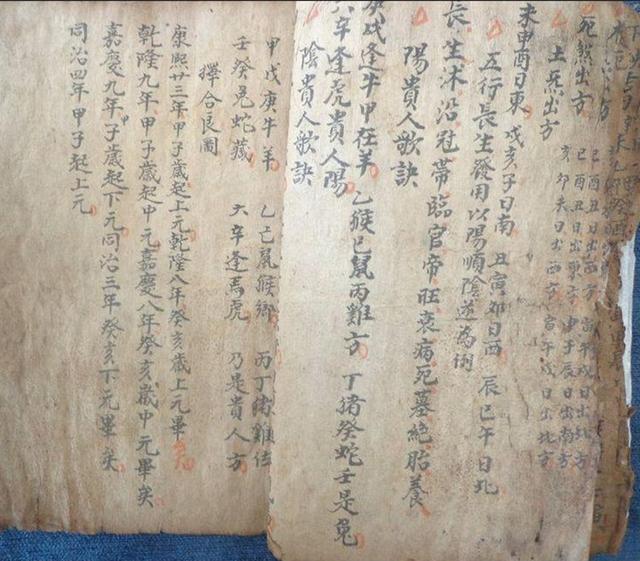 死煞出方
土炁出方
亥卯未日出西方 寅午戌日出北方
未申酉日東 戌亥子日南 丑寅卯日西 辰巳午日北
五行長生發用以陽順陰逆為例
長生沐沿冠帶臨官帝旺衰病死墓絕胎養
陽貴人歌訣
庚戌逢牛甲在羊 乙猴己鼠丙雞方 丁猪癸蛇壬是兔
六辛逢虎貴人陽
陰貴人歌訣
甲戊庚牛羊 乙己鼠猴鄉 丙丁猪雞位
壬癸兔蛇藏 六辛逢馬虎 乃是貴人方
擇合良圖
康熙廿三年甲子歲起上元乾隆八年癸亥歲上元畢
乾隆九年甲子歲起中元嘉慶八年癸亥歲中元畢矣
嘉慶九年子歲起下元同治三年癸亥下元畢矣
同治四年甲子起上元